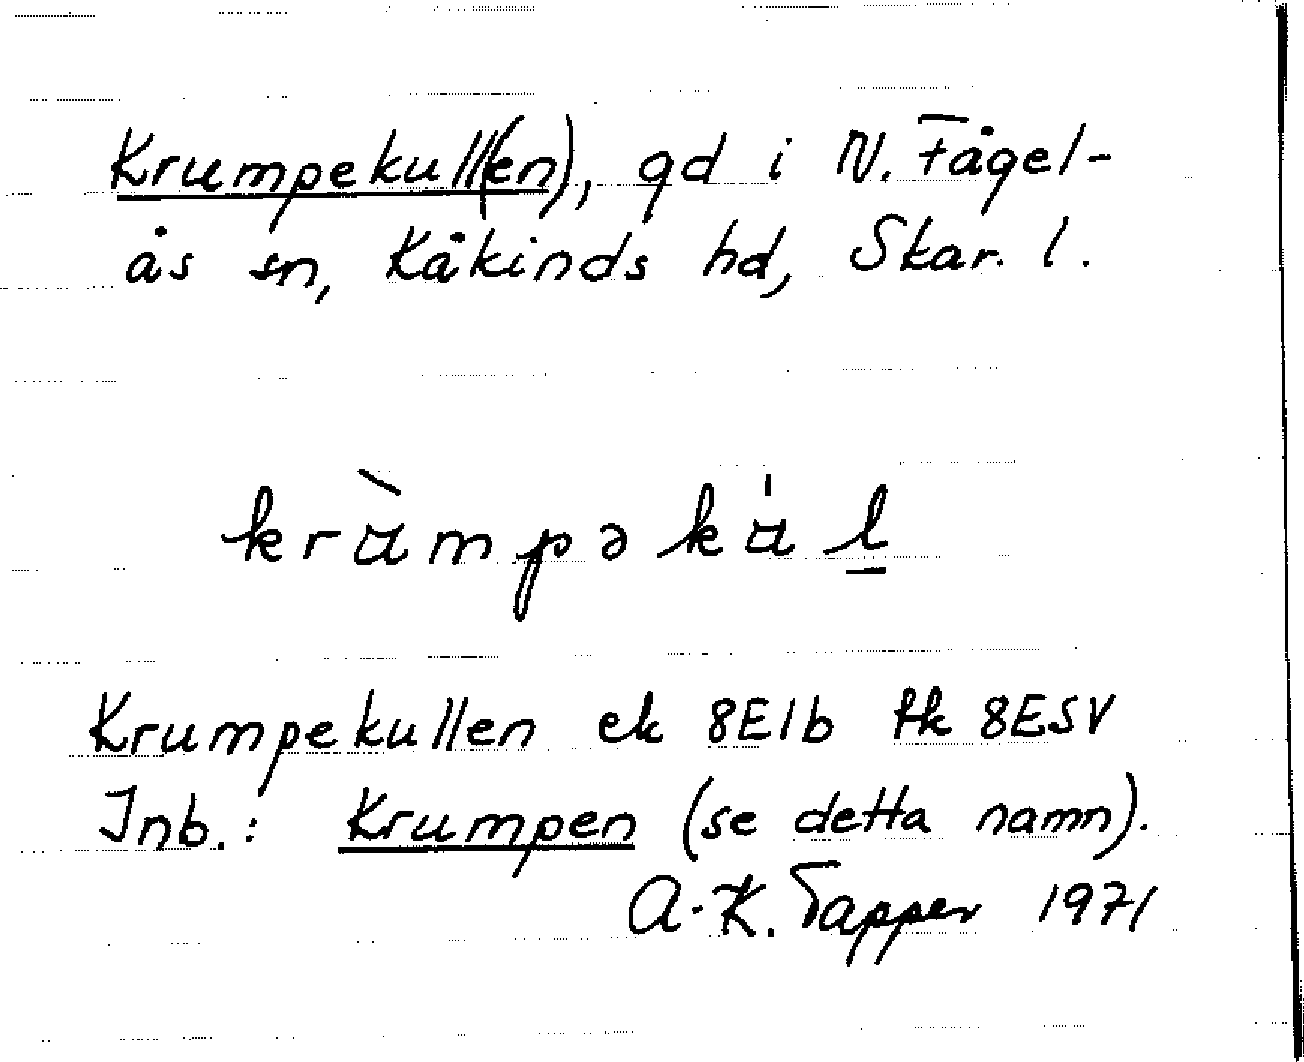 Krumpekull(en), gd i N. Fågel-
ås sn, Kåkinds hd, Skar. l.
kràmpəkál
Krumpekullen ek 8E1b tk 8ESV
Inb.: Krumpen (se detta namn).
A-K. Tapper 1971